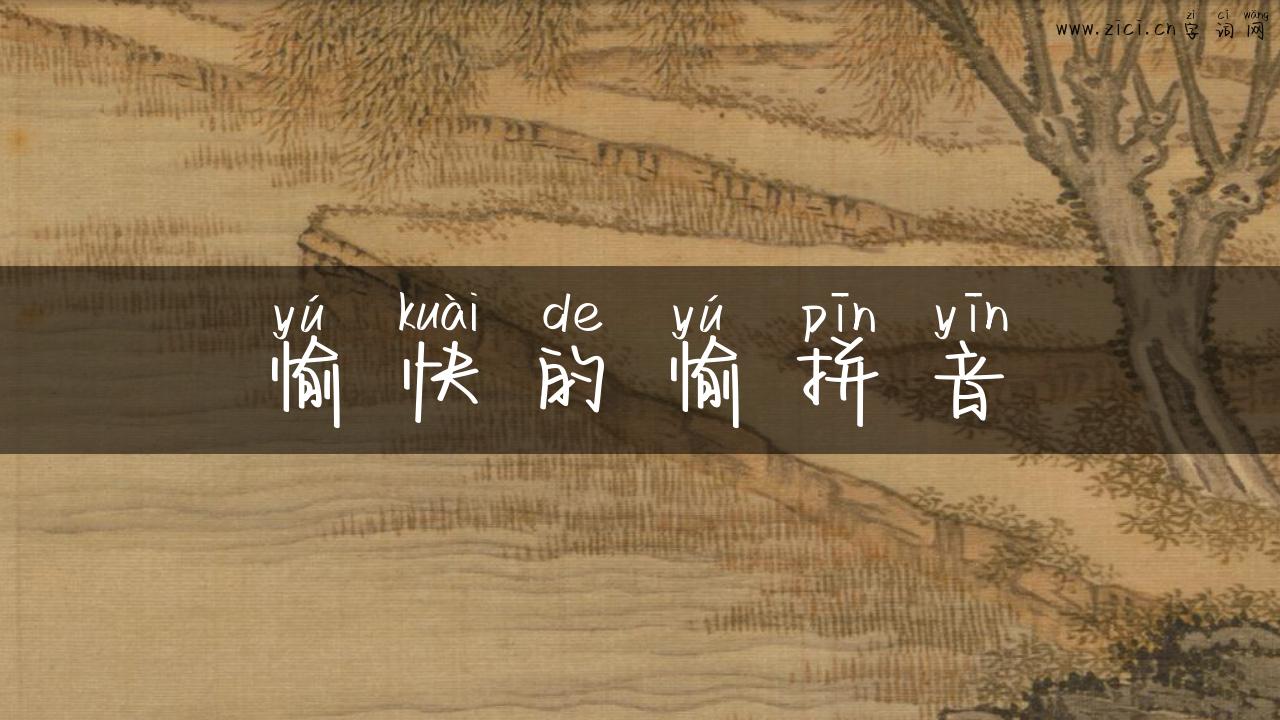 zì cí wǎng
www.zici.cn字词网
yú kuài de yú pīn yīn
愉快的愉拼音